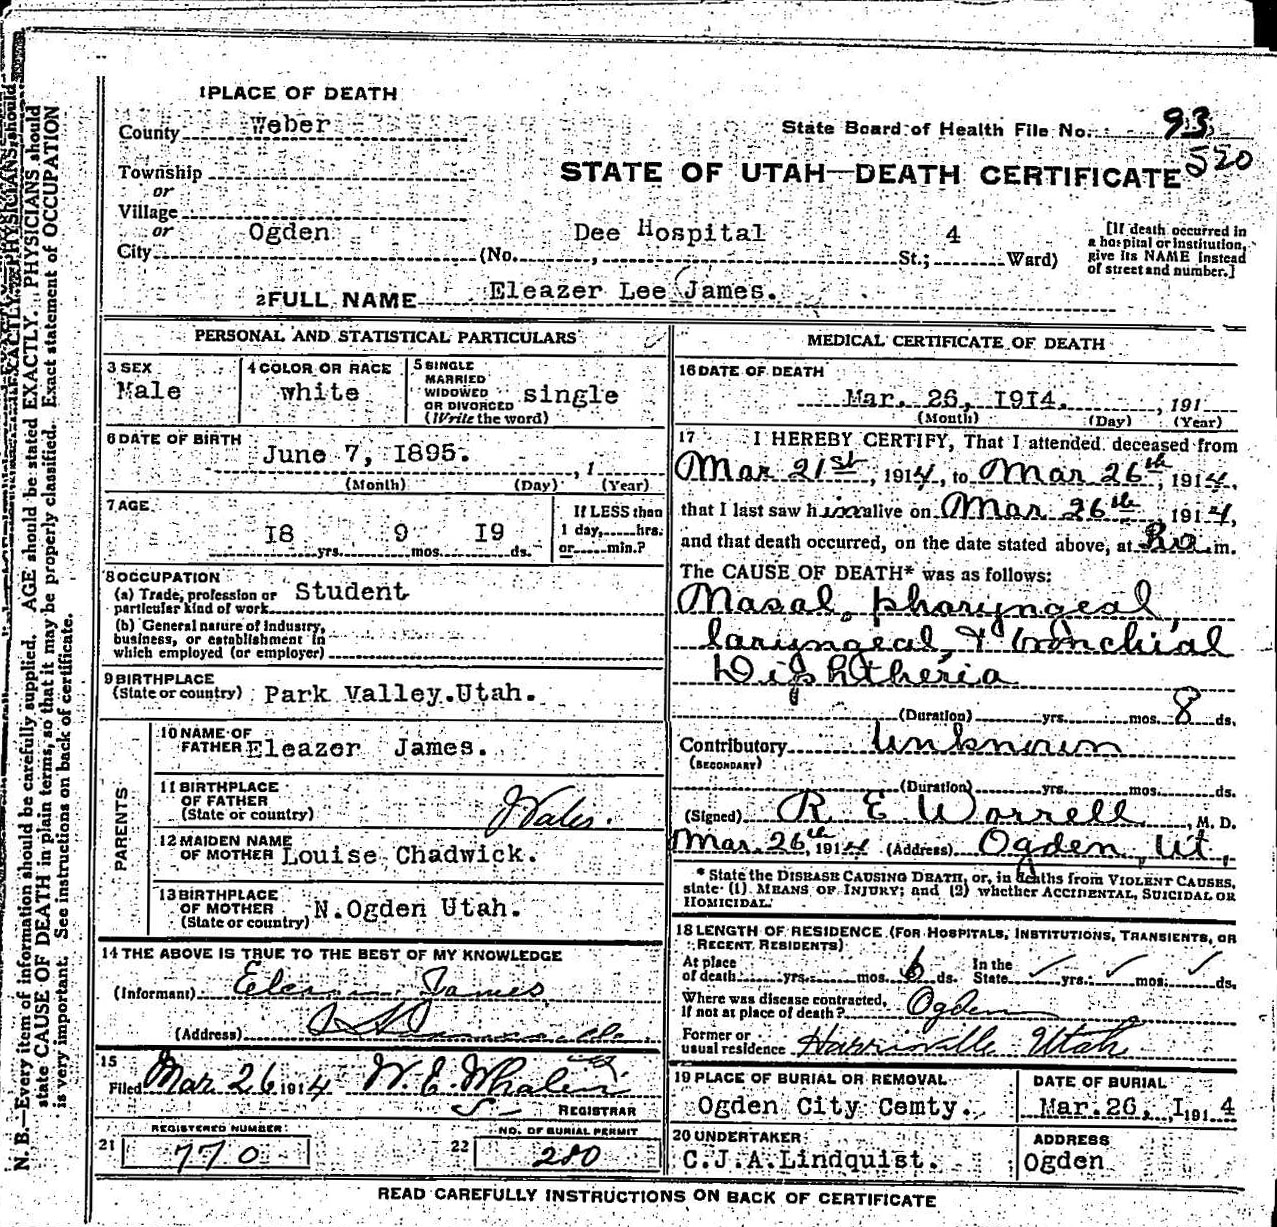 1 PLACE OF DEATH
County Weber
State Board of Health File No. 93
520
STATE OF UTAH—DEATH CERTIFICATE
Township
or
Village
or
City Ogden (No. Dee Hospital, St.; 4 Ward)
[If death occurred in a hospital or institution, give its NAME instead of street and number.]
2 FULL NAME Eleazer Lee James.
PERSONAL AND STATISTICAL PARTICULARS
3 SEX
Male
4 COLOR OR RACE
white
5 SINGLE MARRIED WIDOWED OR DIVORCED
(Write the word) single
6 DATE OF BIRTH
June 7, 1895. , 1
(Month) (Day) (Year)
7 AGE
18 yrs. 9 mos. 19 ds.
If LESS than
1 day, hrs.
or min.?
8 OCCUPATION
(a) Trade, profession or
particular kind of work Student
(b) General nature of industry,
business, or establishment in
which employed (or employer)
9 BIRTHPLACE
(State or country) Park Valley.Utah.
PARENTS
10 NAME OF
FATHER Eleazer James.
11 BIRTHPLACE
OF FATHER
(State or country) Wales.
12 MAIDEN NAME
OF MOTHER Louise Chadwick.
13 BIRTHPLACE
OF MOTHER
(State or country) N.Ogden Utah.
14 THE ABOVE IS TRUE TO THE BEST OF MY KNOWLEDGE
(Informant) James
(Address)
15
Filed Mar 26 1914 W. E. Whalen
REGISTRAR
REGISTERED NUMBER
21 770
NO. OF BURIAL PERMIT
22 280
MEDICAL CERTIFICATE OF DEATH
16 DATE OF DEATH
Mar. 26, 1914. , 191
(Month) (Day) (Year)
17 I HEREBY CERTIFY, That I attended deceased from
Mar 21st, 1914, to Mar 26th, 1914,
that I last saw him alive on Mar 26th 1914,
and that death occurred, on the date stated above, at m.
The CAUSE OF DEATH* was as follows:
Nasal, pharyngeal,
laryngeal, & bronchial
Diphtheria
(Duration) yrs. mos. 8 ds.
Contributory Unknown
(SECONDARY)
(Duration) yrs. mos. ds.
(Signed) R E Worrell, M. D.
Mar. 26th, 1914 (Address) Ogden, Ut,
* State the DISEASE CAUSING DEATH, or, in deaths from VIOLENT CAUSES,
state (1) MEANS OF INJURY; and (2) whether ACCIDENTAL, SUICIDAL OR
HOMICIDAL.
18 LENGTH OF RESIDENCE (FOR HOSPITALS, INSTITUTIONS, TRANSIENTS, OR
RECENT RESIDENTS)
At place
of death yrs. mos. 6 ds. In the
State ✓ yrs. ✓ mos. ✓ ds.
Where was disease contracted,
If not at place of death? Ogden
Former or
usual residence Harrisville Utah
19 PLACE OF BURIAL OR REMOVAL
Ogden City Cemty.
DATE OF BURIAL
Mar.26, 1 191 4
20 UNDERTAKER
C.J.A.Lindquist.
ADDRESS
Ogden
READ CAREFULLY INSTRUCTIONS ON BACK OF CERTIFICATE
N. B.—Every item of information should be carefully supplied. AGE should be stated EXACTLY. PHYSICIANS should
state CAUSE OF DEATH in plain terms, so that it may be properly classified. Exact statement of OCCUPATION
is very important. See instructions on back of certificate.